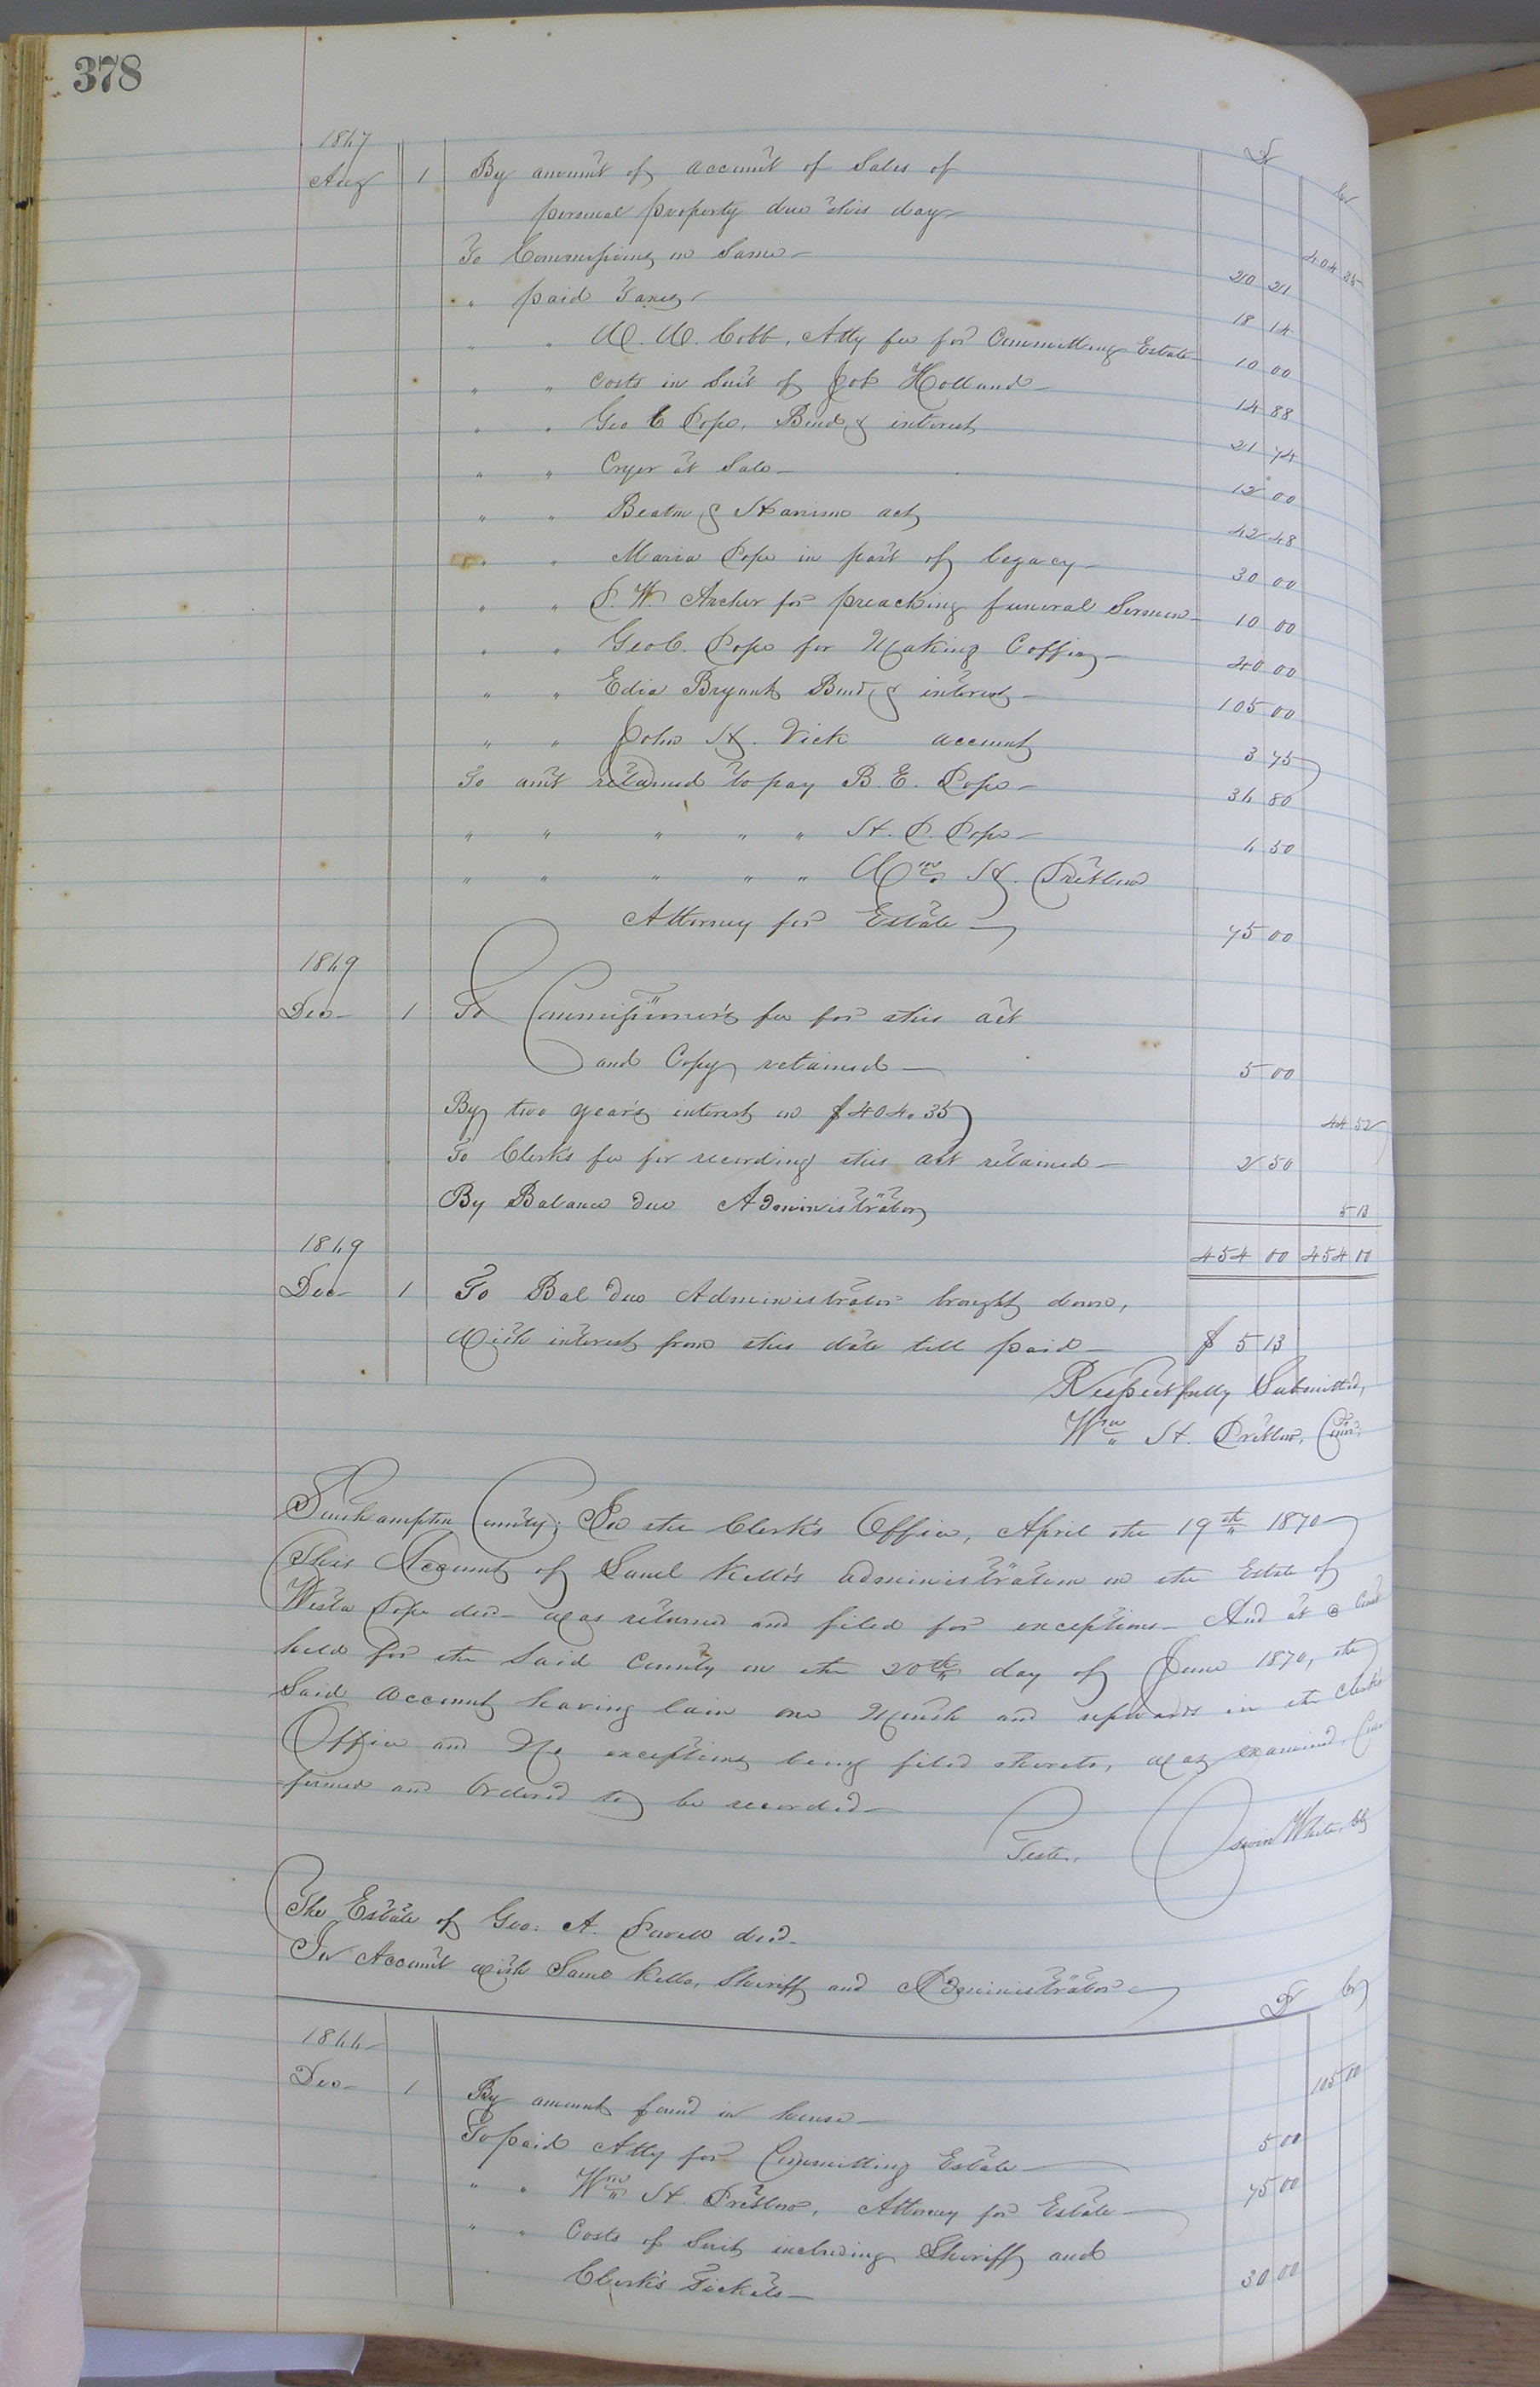 378
1867 Dr Cr
Aug 1 By amount of account of Sales of
personal property due this day 404 35
To Commissions on Same 20 21
" paid Taxes 18 14
" " W. W. Cobb, Atty fee for Committing Estate 10 00
" " Costs in Suit of Job Holland 14 88
" " Geo C Pope, Bond & interest 21 74
" " Cryer at Sale 12 00
" " Beaton & act 42 48
" " Maria Pope in part of legacy 30 00
" " P. W. Archer for preaching funeral Sermon 10 00
" " Geo C. Pope for Making Coffin 40 00
" " Edia Bryant Bond & interest 105 00
" " John H. Vick account 3 75
To amt retained to pay B. E. Pope 36 80
" " " " " H. P. Pope 6 50
" " " " " Wm H. Pretlow
Attorney for Estate 75 00
1869
Dec 1 To Commissioner's fee for this act
and Copy retained 5 00
By two year's interest on $404.35 44 52
To Clerk's fee for recording this act retained 2 50
By Balance due Administrator 5 13
454 00 454 00
1869
Dec 1 To Bal due Administrator brought down,
With interest from this date till paid $ 5 13
Respectfully Submitted,
Wm H. Pretlow, Comr.
Southampton County; In the Clerk's Office, April the 19th 1870
This Account of Saml Kello's administration on the Estate of
Pope decd was returned and filed for exceptions And at a Court
held for the Said County on the 20th day of June 1870, the
Said account having lain one Month and upwards in the Clerk's
Office and No exceptions being filed thereto, was examined, Con
firmed and Ordered to be recorded
Teste, White, Clk
The Estate of Geo: A. Powell decd.
In Account with Saml Kello, Sheriff and Administrator Dr Cr
1866
Dec 1 By amount found in house 105 00
To paid Atty for Committing Estate 5 00
" " Wm H. Pretlow, Attorney for Estate 75 00
" " Costs of Suit including Sheriff and
Clerk's Tickets 30 00